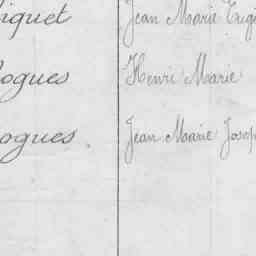 iguet Jean Marie Eugè
ogues Henri Marie
ogues. Jean Marie Josep